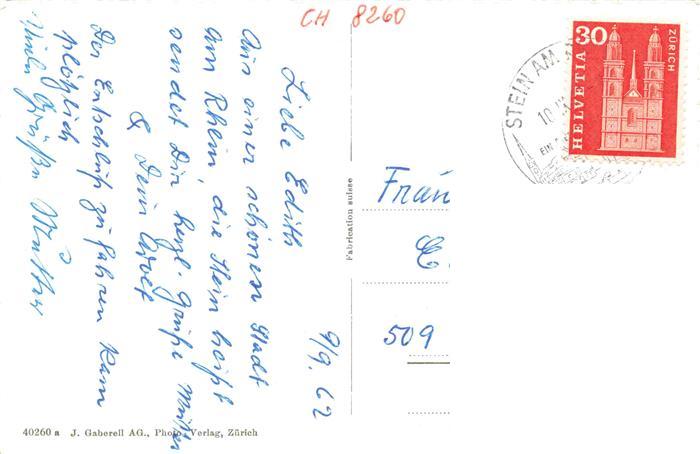 CH 8260
Liebe Edith
Aus einer schönen Stadt
am Rhein, die Stein heißt
sendet Dir herzl. Grüße Mutter
& Dein
Der Entschluß zu fahren kam
plötzlich
Viele Grüße Mutter
9/9. 62
Fabrication suisse
Fräu
E.
509
STEIN AM
10.
EIN
30
HELVETIA
ZÜRICH
40260 a J. Gaberell AG., Photo-Verlag, Zürich